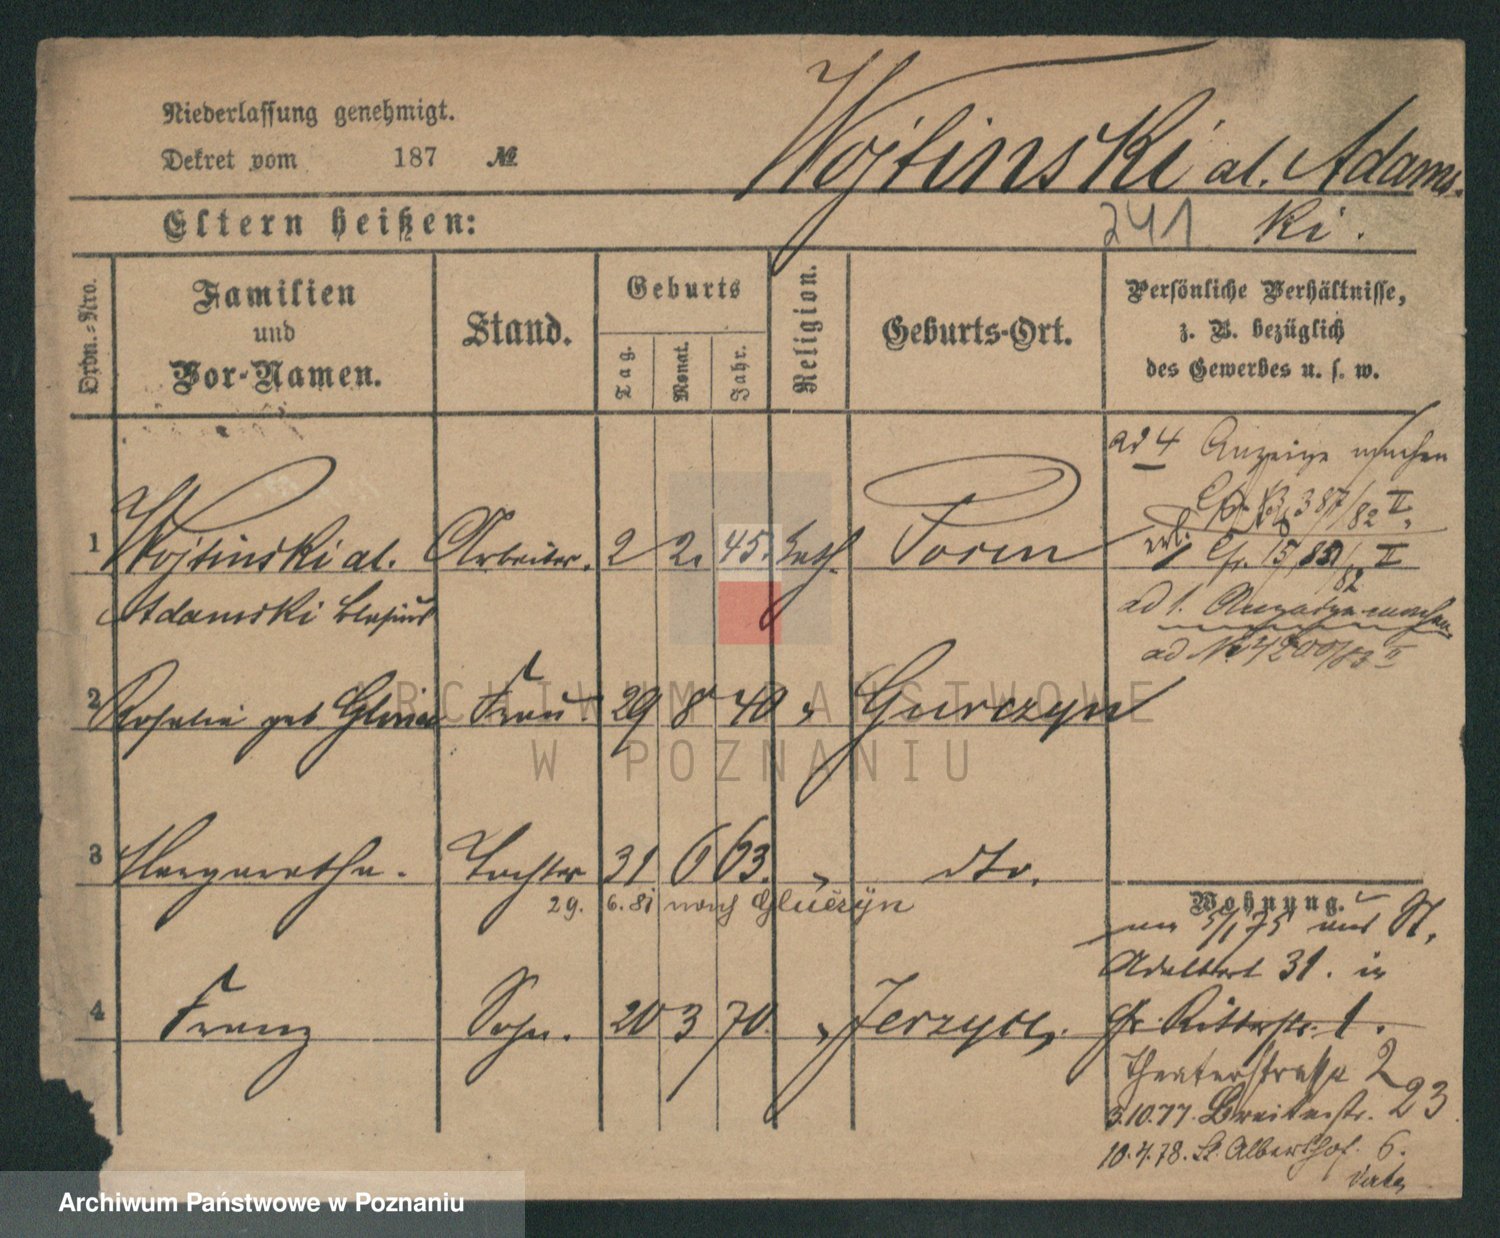 Niederlassung genehmigt.
Dekret vom 187 №
Wojtinski al. Adams-
241 ki.
Eltern heißen:
Ordn.-Nro.
Familien
und
Vor-Namen.
Stand.
Geburts
Tag.
Monat.
Jahr.
Religion.
Geburts-Ort.
Persönliche Verhältnisse,
z. B. bezüglich
des Gewerbes u. s. w.
ad 4 Anzeige machen
387/82 II.
1 Wojtinski al. Arbeiter. 2 2. 45. kath. Posen
erl. 15/82 II
Adamski Blasius
ad 1. Anzeige machen
ad № 4200/83 II
2 Rosalie geb Frau. 29 8 40 " Gurczyn
3 Margarethe. Tochter 31 6 63. " dto.
29. 6. 81 nach Gluczyn
Wohnung.
am 5/1 75 aus St.
Adalbert 31. in
4 Franz Sohn. 20 3 70. " Jerzyce.
Gr. Ritterstr. 1.
Theaterstraße 2
3.10.77. Breitestr. 23
10.4.78. St. Adalbert 6.
ARCHIWUM PAŃSTWOWE
W POZNANIU
Archiwum Państwowe w Poznaniu